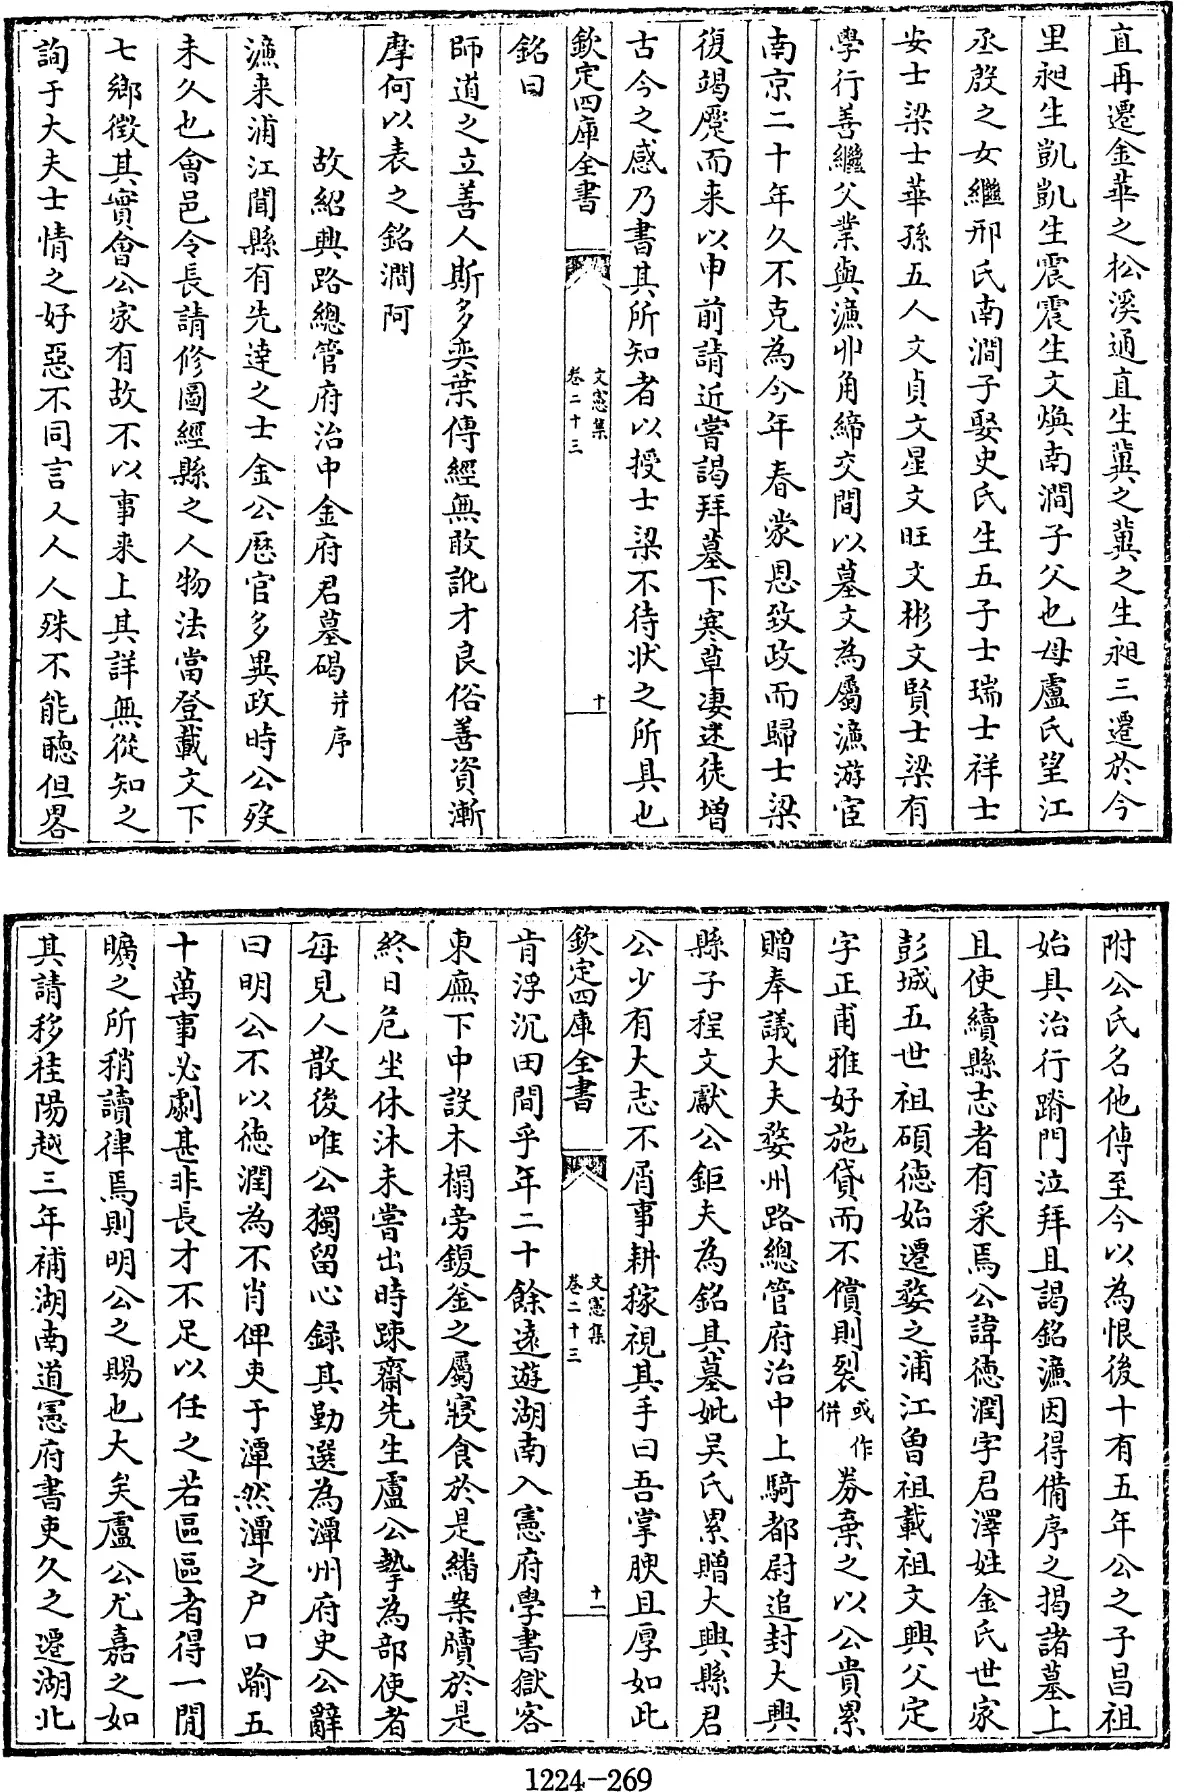 直再遷金華之松溪通直生冀之冀之生昶三遷於今
里昶生凱凱生震震生文煥南澗子父也母盧氏望江
丞殷之女繼邢氏南澗子娶史氏生五子士瑞士祥士
安士梁士華孫五人文貞文星文旺文彬文賢士梁有
學行善繼父業與濂丱角締交間以墓文為屬濂游宦
南京二十年久不克為今年春蒙恩致政而歸士梁
復竭蹷而来以申前請近嘗謁拜墓下寒草凄迷徒增
古今之感乃書其所知者以授士梁不待狀之所具也
欽定四庫全書
文憲集
卷二十三
十
銘曰
師道之立善人斯多奕葉傳經無敢訛才良俗善資漸
摩何以表之銘澗阿
故紹興路總管府治中金府君墓碣并序
濂来浦江聞縣有先達之士金公歴官多異政時公歿
未久也會邑令長請修圖經縣之人物法當登載文下
七鄉徵其實會公家有故不以事来上其詳無從知之
詢于大夫士情之好惡不同言人人人殊不能聴但畧
附公氏名他傳至今以為恨後十有五年公之子昌祖
始具治行躋門泣拜且謁銘濂因得備序之揭諸墓上
且使續縣志者有采焉公諱徳潤字君澤姓金氏世家
彭城五世祖碩徳始遷婺之浦江曽祖載祖文興父定
字正甫雅好施貸而不償則裂或作併券棄之以公貴累
贈奉議大夫婺州路總管府治中上騎都尉追封大興
縣子程文獻公鉅夫為銘其墓妣吴氏累贈大興縣君
公少有大志不屑事耕稼視其手曰吾掌腴且厚如此
欽定四庫全書
文憲集
卷二十三
十一
肯浮沉田間乎年二十餘遠遊湖南入憲府學書獄客
東廡下中設木榻旁鍑釜之屬寢食於是繙案牘於是
終日危坐休沐未嘗出時疎齋先生盧公摯為部使者
每見人散後唯公獨留心録其勤選為潭州府史公辭
曰明公不以徳潤為不肖俾吏于潭然潭之户口踰五
十萬事必劇甚非長才不足以任之若區區者得一閒
曠之所稍讀律焉則明公之賜也大矣盧公尤嘉之如
其請移桂陽越三年補湖南道憲府書吏久之遷湖北
1224-269